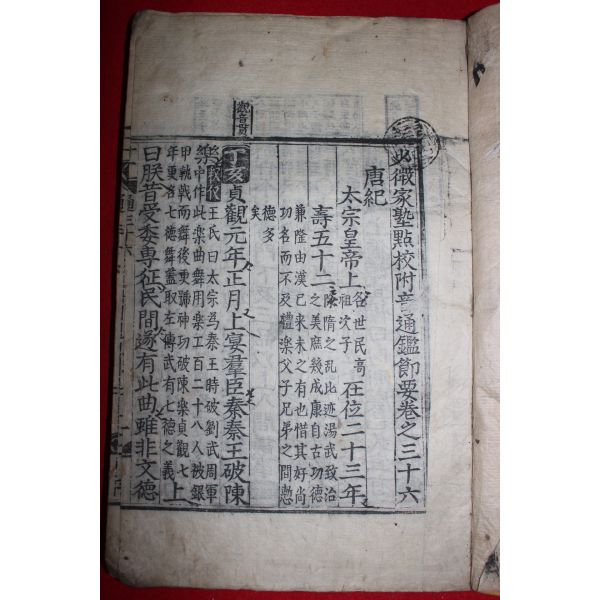 少微家塾點校附音通鑑節要卷之三十六
唐紀
太宗皇帝上 名世民高祖次子 在位二十三年
壽五十二 除隋之亂比迹湯武致治之美庶幾成康自古功德兼隆由漢已來未之有也惜其好尚功名而不及禮樂父子兄弟之間慙德多矣
觀音貫
丁亥 貞觀元年正月上宴羣臣奏秦王破陳
樂 王氏曰太宗爲秦王時破劉武周軍中作此樂曲舞用樂工百二十八人被銀甲執戟而舞後更號神功破陳樂貞觀七年更名七德舞蓋取左傳武有七德之義 上
曰朕昔受委專征民間遂有此曲雖非文德